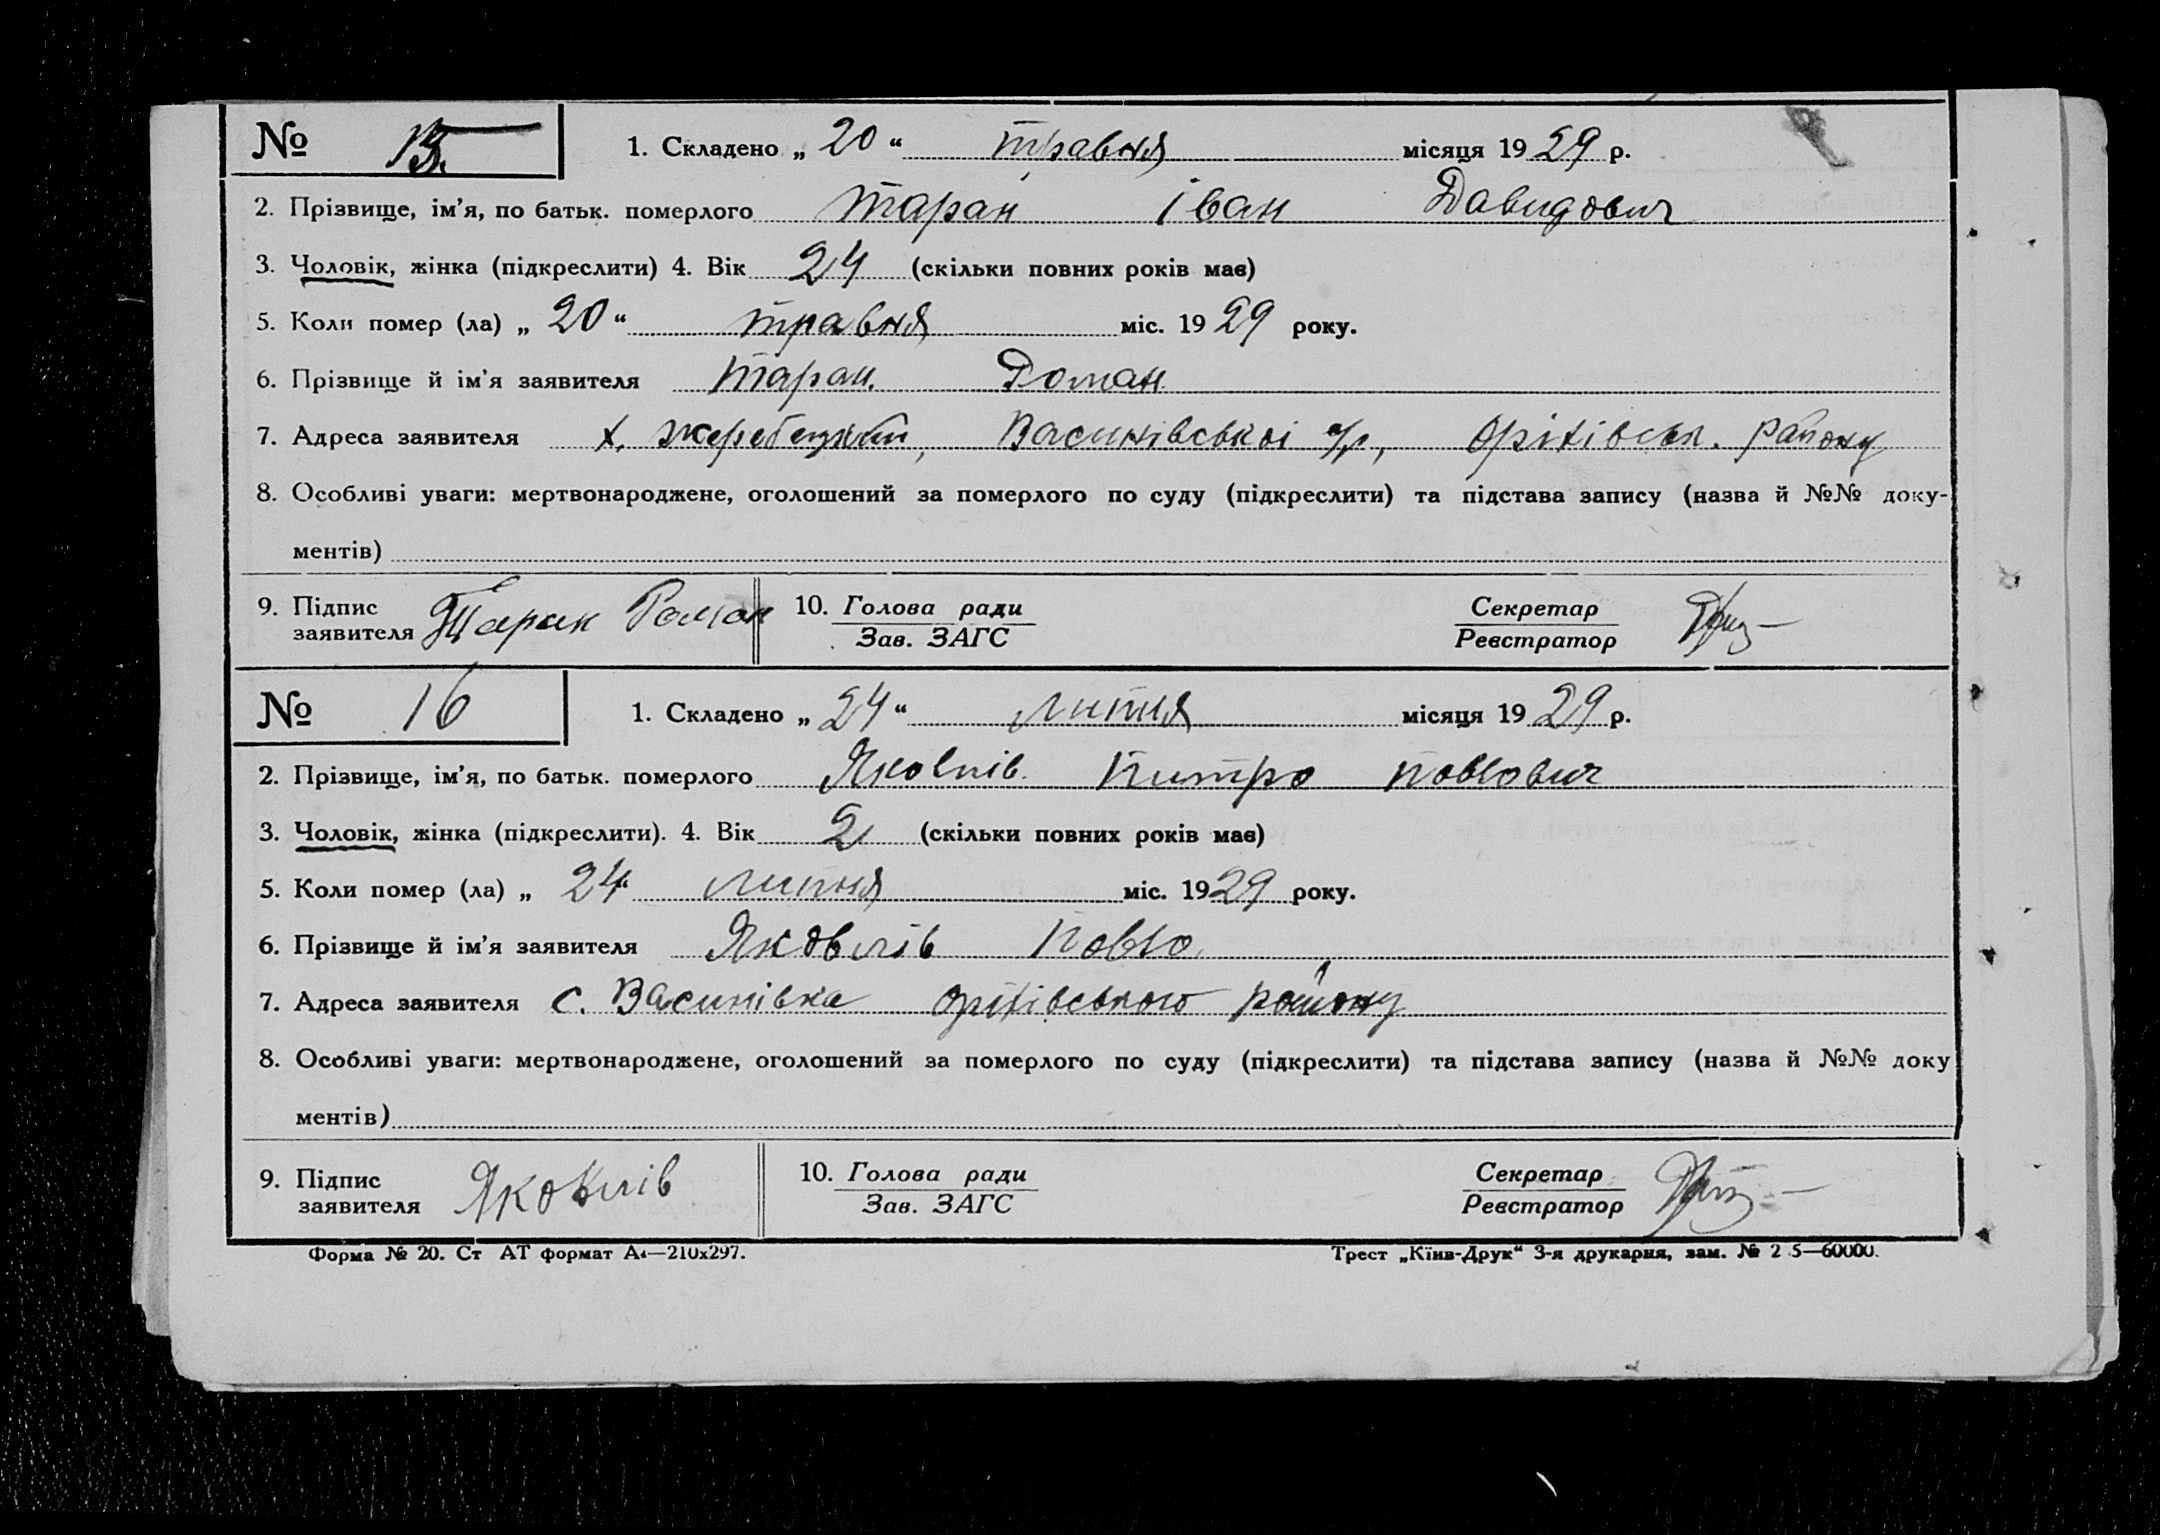 № 15. 1. Складено „ 20 “ травня місяця 19 29 р.
2. Прізвище, ім’я, по батьк. померлого Таран Іван Давидович
3. Чоловік, жінка (підкреслити) 4. Вік 24 (скільки повних років має)
5. Коли помер (ла) „ 20 “ травня міс. 19 29 року.
6. Прізвище й ім’я заявителя Таран. Роман
7. Адреса заявителя х. Жеребецький, Васинівської с/р, Оріхівськ. району
8. Особливі уваги: мертвонароджене, оголошений за померлого по суду (підкреслити) та підстава запису (назва й №№ доку-
ментів)
9. Підпис заявителя Таран Роман 10. Голова ради Зав. ЗАГС Секретар Реєстратор
№ 16 1. Складено „ 24 “ липня місяця 19 29 р.
2. Прізвище, ім’я, по батьк. померлого Яковлів ПитроПовлович
3. Чоловік, жінка (підкреслити). 4. Вік 2 (скільки повних років має)
5. Коли помер (ла) „ 24 “ липня міс. 19 29 року.
6. Прізвище й ім’я заявителя Яковлів Повло.
7. Адреса заявителя с. Васинівка Оріхівського району
8. Особливі уваги: мертвонароджене, оголошений за померлого по суду (підкреслити) та підстава запису (назва й №№ доку
ментів)
9. Підпис заявителя Яковлів 10. Голова ради Зав. ЗАГС Секретар Реєстратор
Форма № 20. Ст АТ формат А4—210х297. Трест „Київ-Друк“ 3-я друкарня, зам. № 2 5—60000.